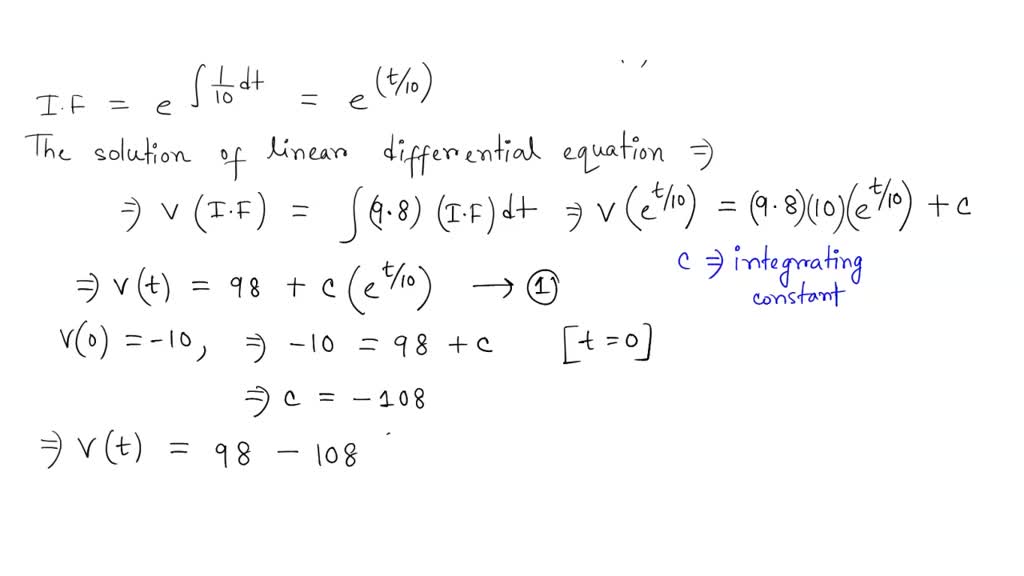 I.F = e^{∫ 1/10 dt} = e^{(t/10)}
The solution of linear differential equation ⇒
⇒ v (I.F) = ∫(9.8) (I.F) dt ⇒ v (e^{t/10}) = (9.8)(10)(e^{t/10}) + c
c ⇒ integrating constant
⇒ v(t) = 98 + c (e^{t/10}) → ①
v(0) = -10, ⇒ -10 = 98 + c [t = 0]
⇒ c = -108
⇒ v(t) = 98 - 108